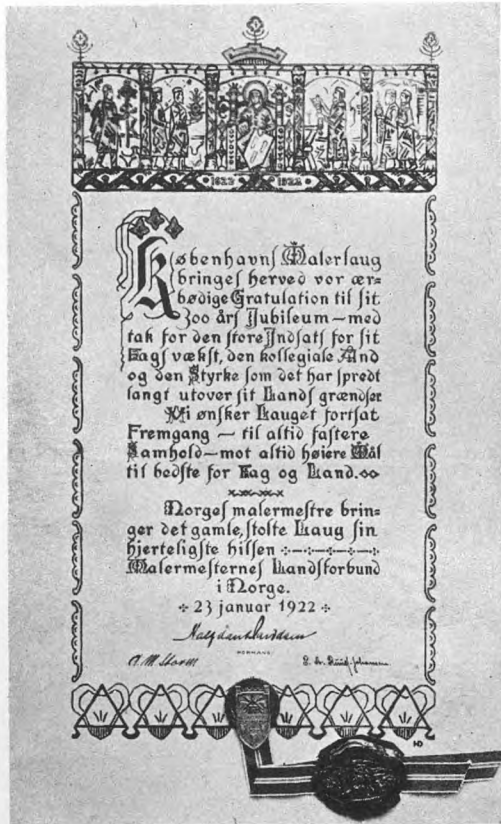 1622 1922
Københavns Malerlaug
bringes herved vor ær-
bødige Gratulation til sit
300 års Jubileum – med
tak for den store Indsats for sit
Fags vækst, den kollegiale Ånd
og den Styrke som det har spredt
langt utover sit Lands grændser
Vi ønsker Lauget fortsat
Fremgang – til altid fastere
Samhold – mot altid høiere Mål
til bedste for Fag og Land.
Norges malermestre brin-
ger det gamle, stolte Laug sin
hjerteligste hilsen
Malermesternes Landsforbund
i Norge.
23 januar 1922
FORMAND